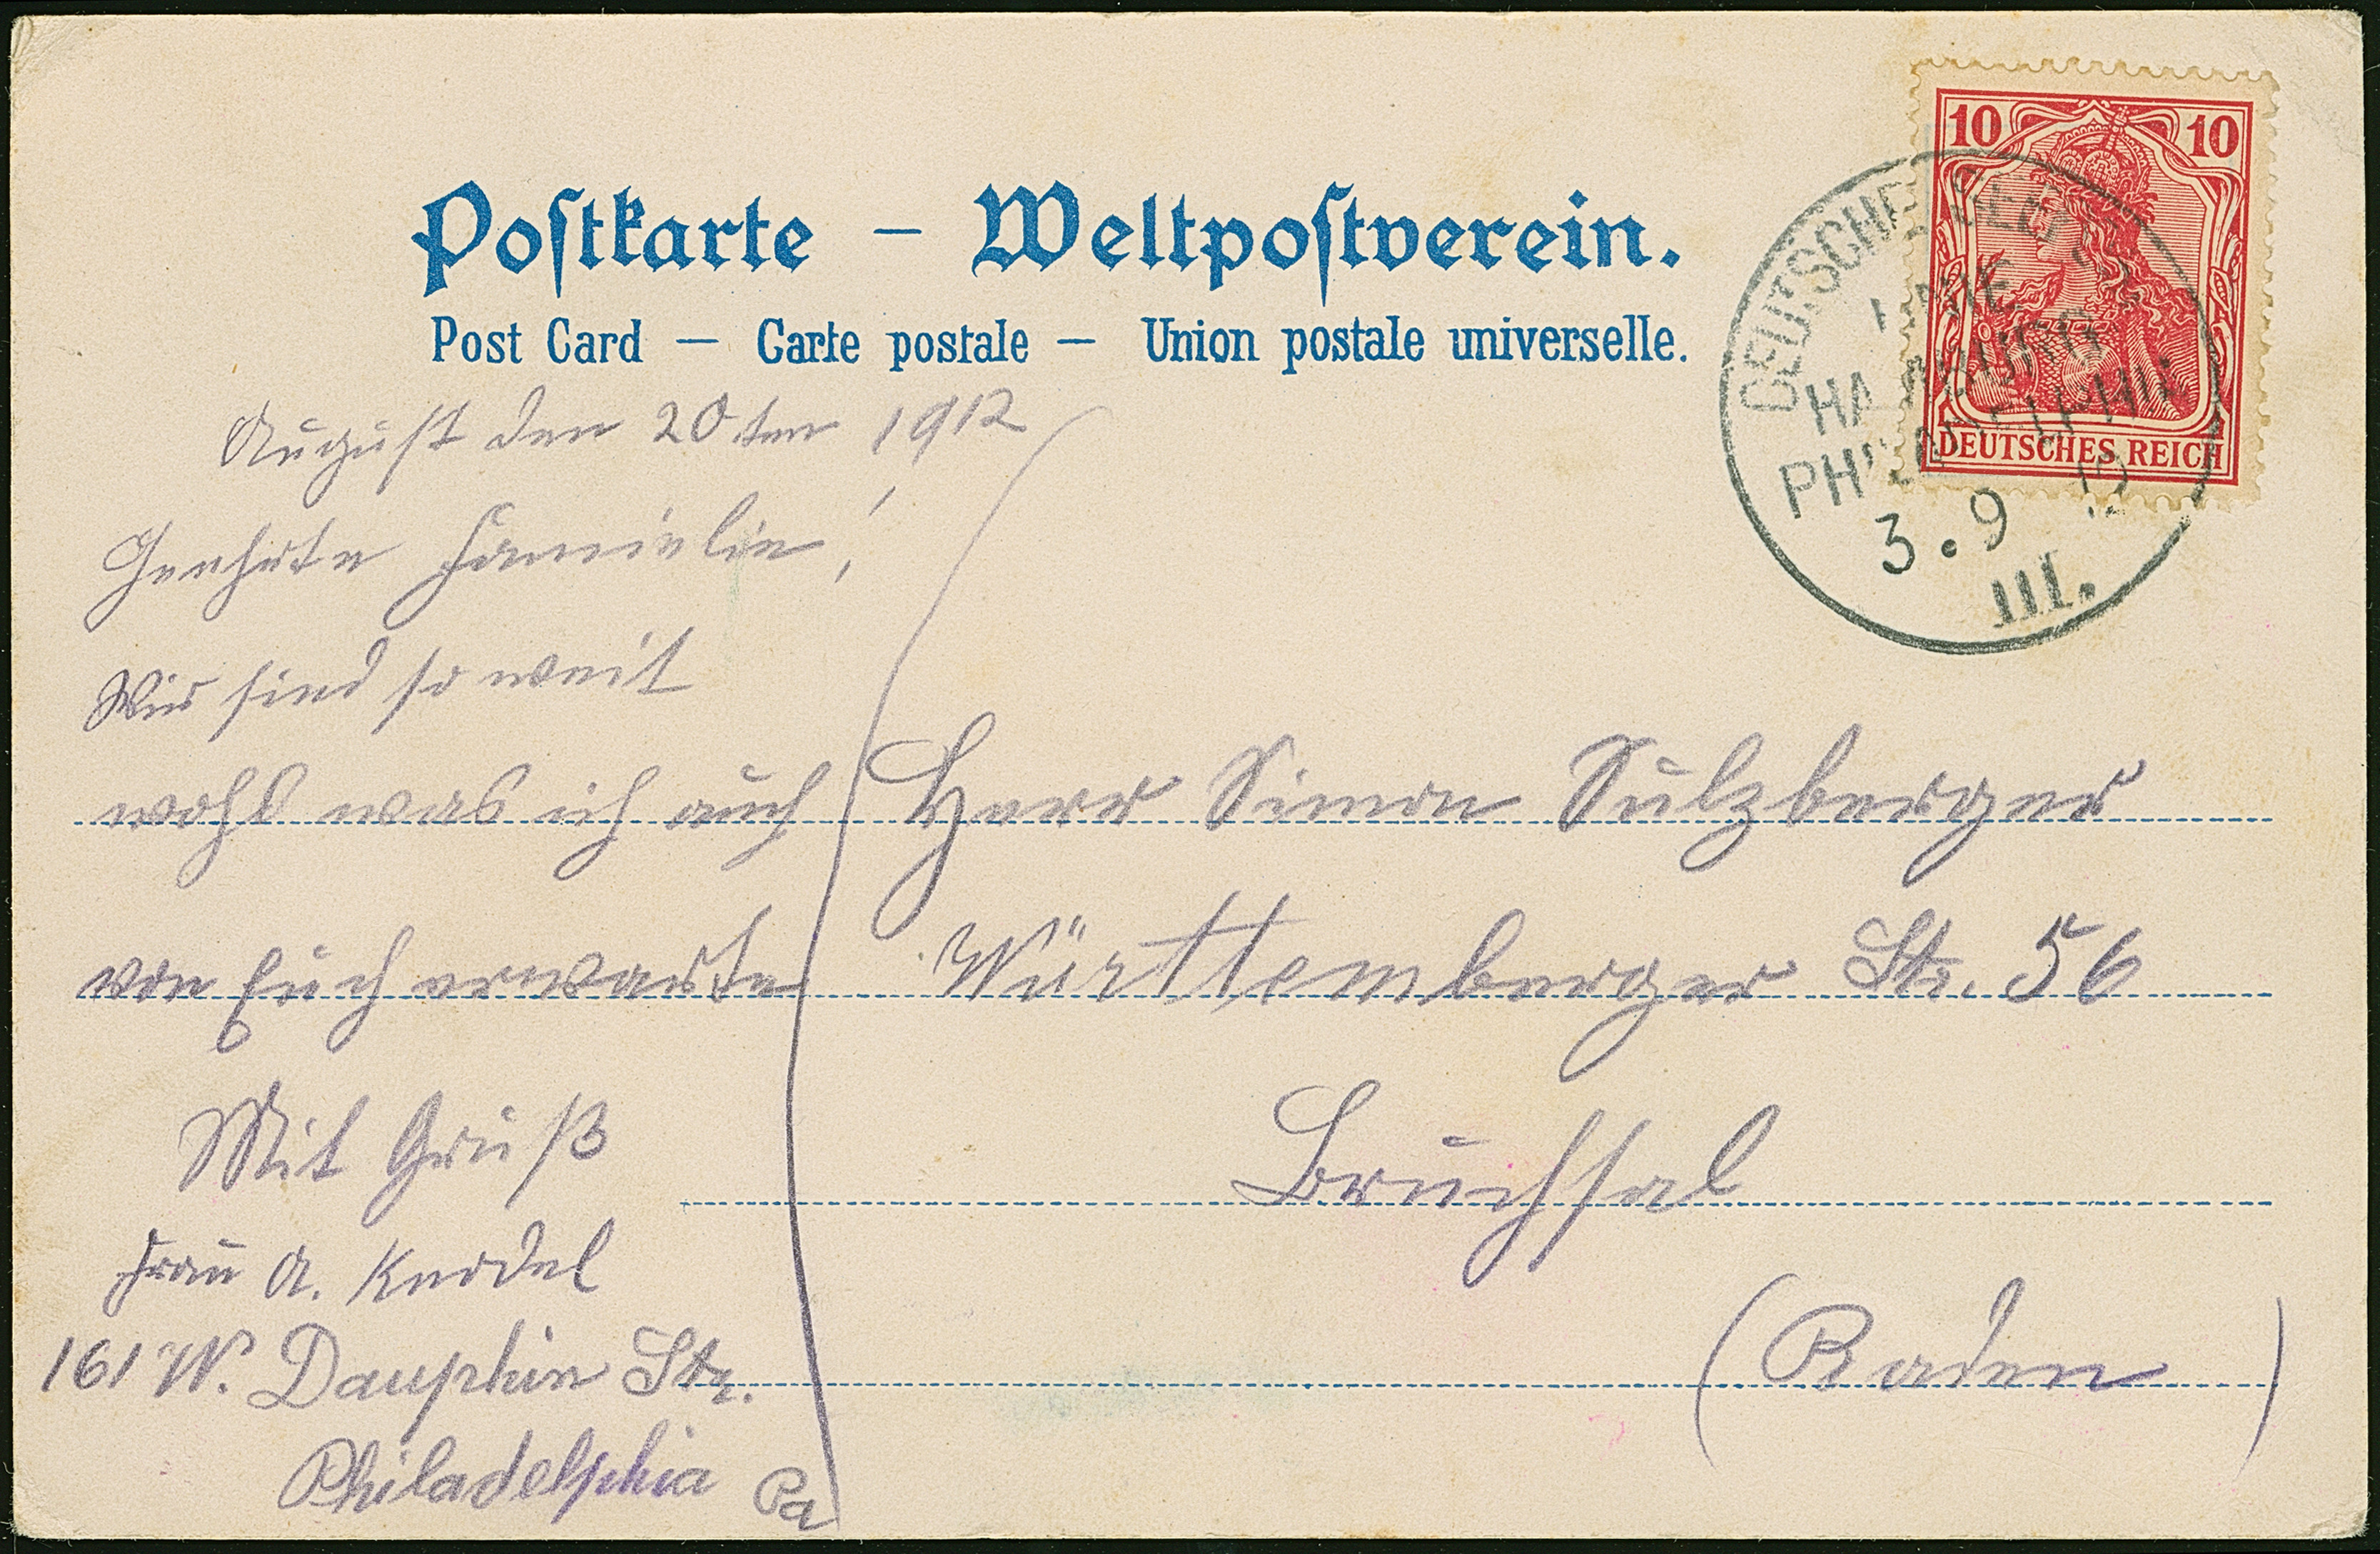 Postkarte – Weltpostverein.
Post Card – Carte postale – Union postale universelle.
10 10
DEUTSCHES REICH
DEUTSCHE SEEPOST
LINIE
HAMBURG
PHILADELPHIA
3.9 12
III.
August den 20ten 1912
Geehrte Familie!
Wir sind so weit
wohl was ich auch
von Euch erwarte
Mit Gruß
Frau A. Knodel
161 W. Dauphin Str.
Philadelphia Pa
Herr Simon Sulzberger
Württemberger Str. 56
Bruchsal
(Baden)